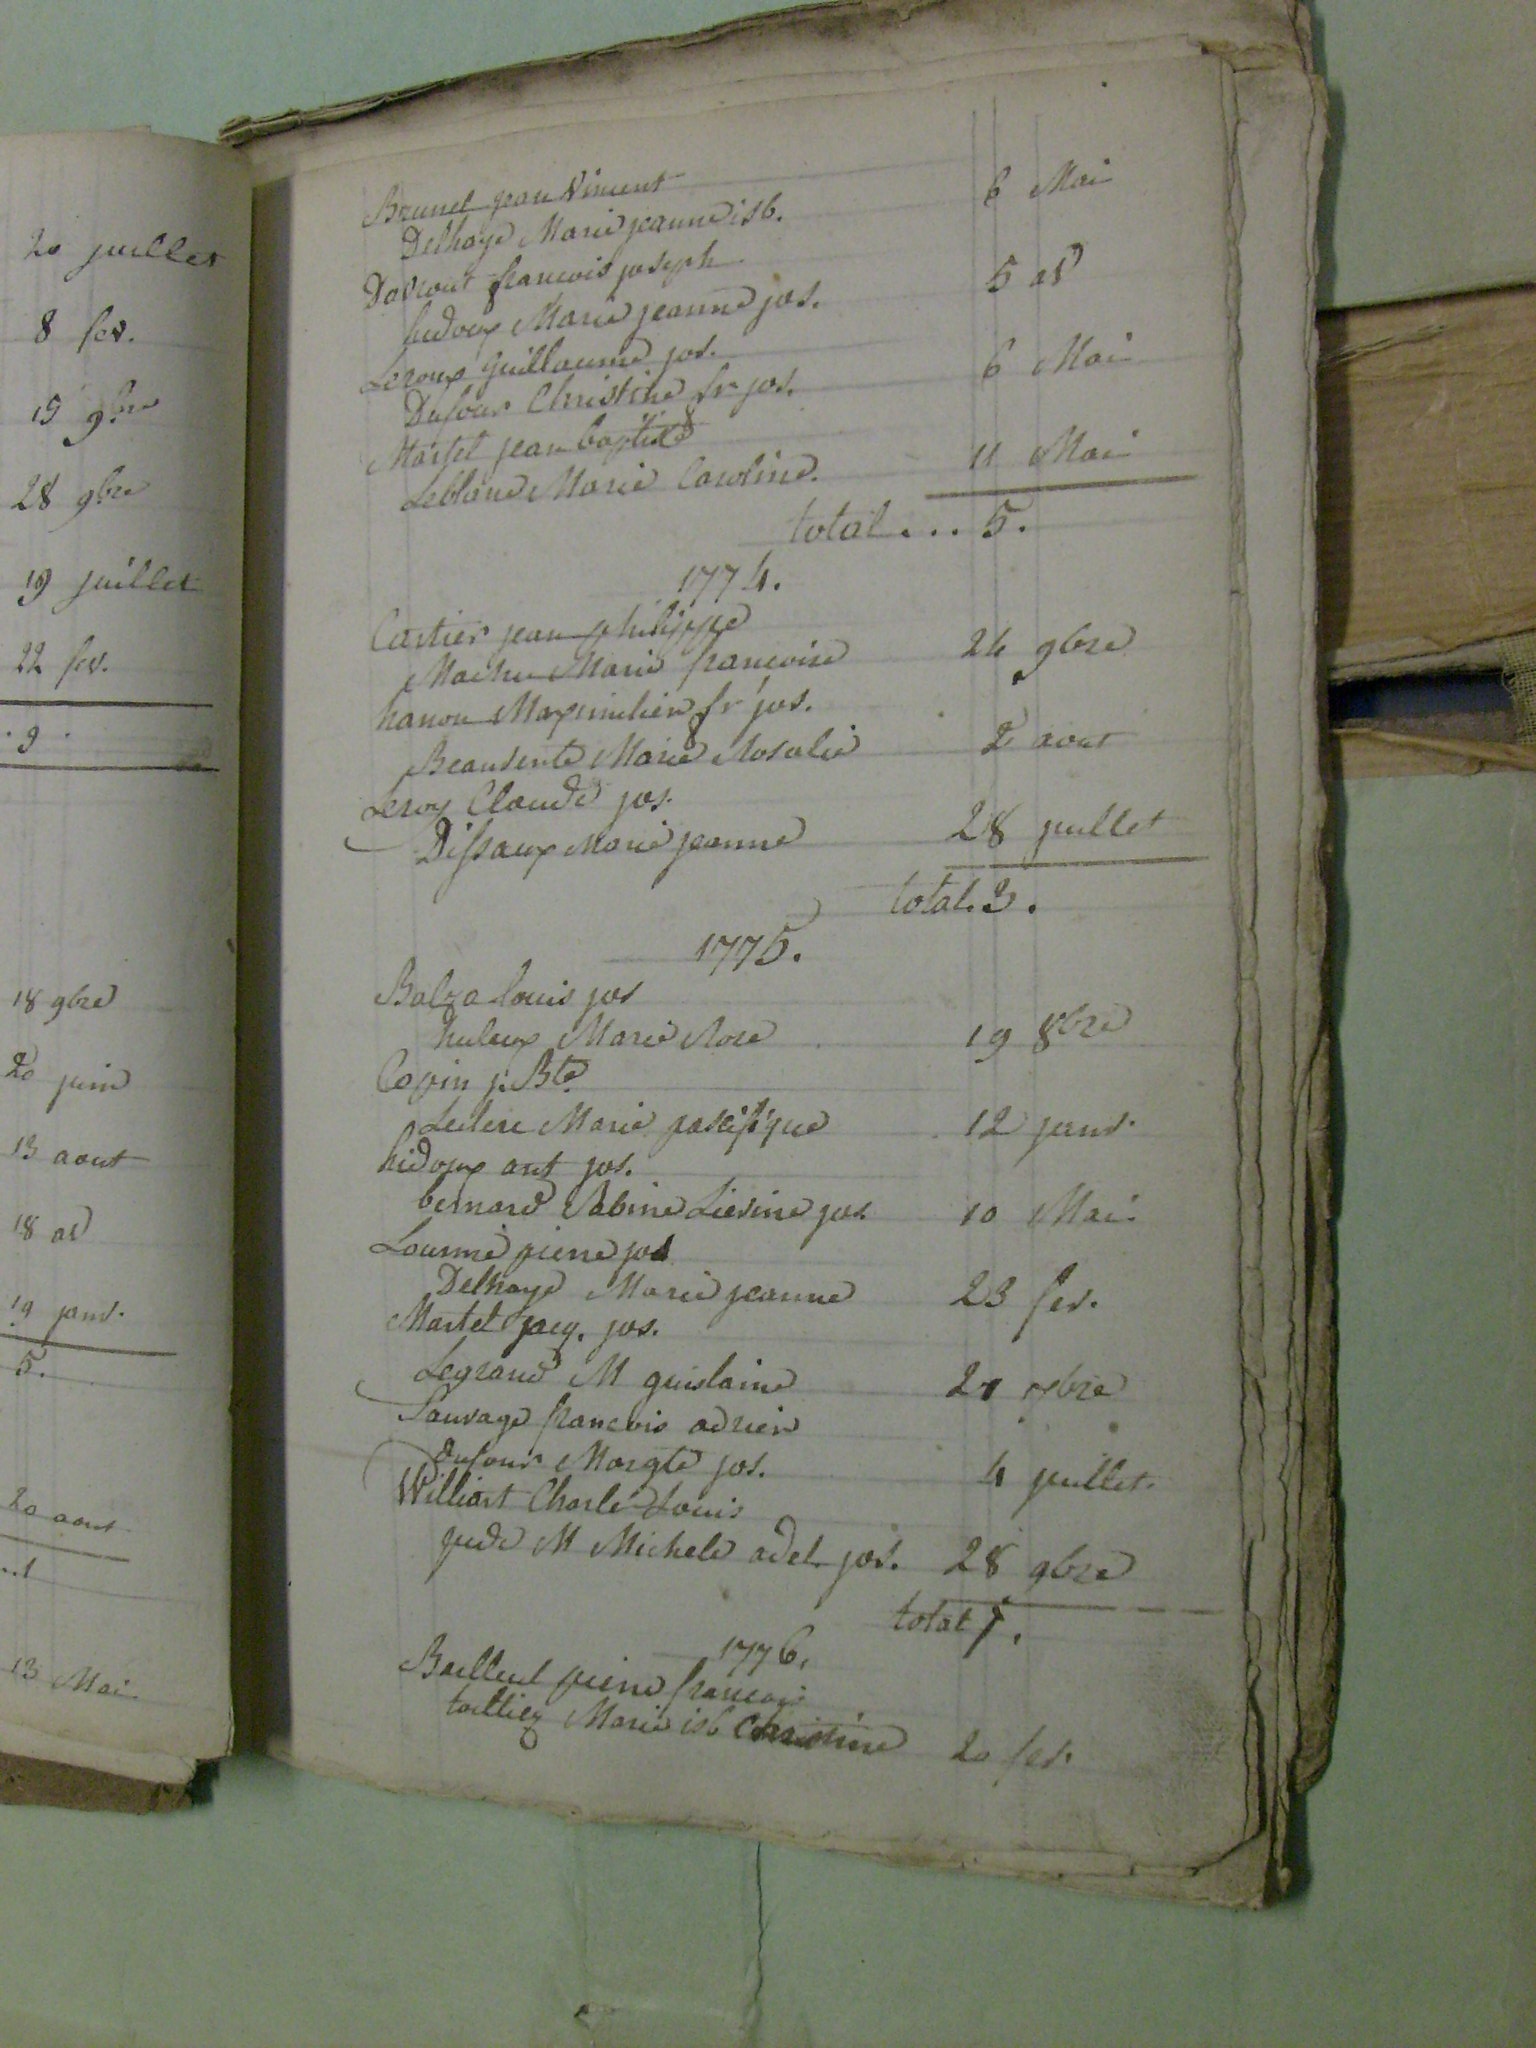 20 juillet
8 fev.
15 9bre
28 9bre
19 juillet
22 fev.
9
18 9bre
20 juin
13 aout
18 av
19 janv.
5.
20 aout
..1
13 Mai
Brunel jean Vincent
Delhaye Marie jeanne isb. 6 Mai
Davrout francois joseph
hidoux Marie jeanne jos. 5 av
Leroux Guillaume jos.
Dufour Christine fr jos. 6 Mai
Martel jean baptiste
Leblanc Marie Caroline. 11 Mai
total... 5.
1774.
Cartier jean philippe
Machu Marie francoise 24 9bre
hanon Maximilien fr jos.
Beauvente Marie Rosalie 2 aout
Leroy Claude jos.
Dissaux Marie jeanne 28 juillet
total. 3.
1775.
Balza louis jos
huleux Marie Rose 19 8bre
Copin j. Bte
Leclerc Marie pascifique 12 janv.
hidoux ant jos.
bernard Sabine Lievine jos. 10 Mai
Lourme pierre jos
Delhaye Marie jeanne 23 fev.
Martel jacq. jos.
Legrand M guislaine 21 7bre
Sauvage francois adrien
dufour Margte jos. 4 juillet.
Williart Charle Louis
M Michele adel. jos. 28 9bre
total 7.
1776.
Bailleul pierre francois
tailliez Marie isb Christine 20 fev.